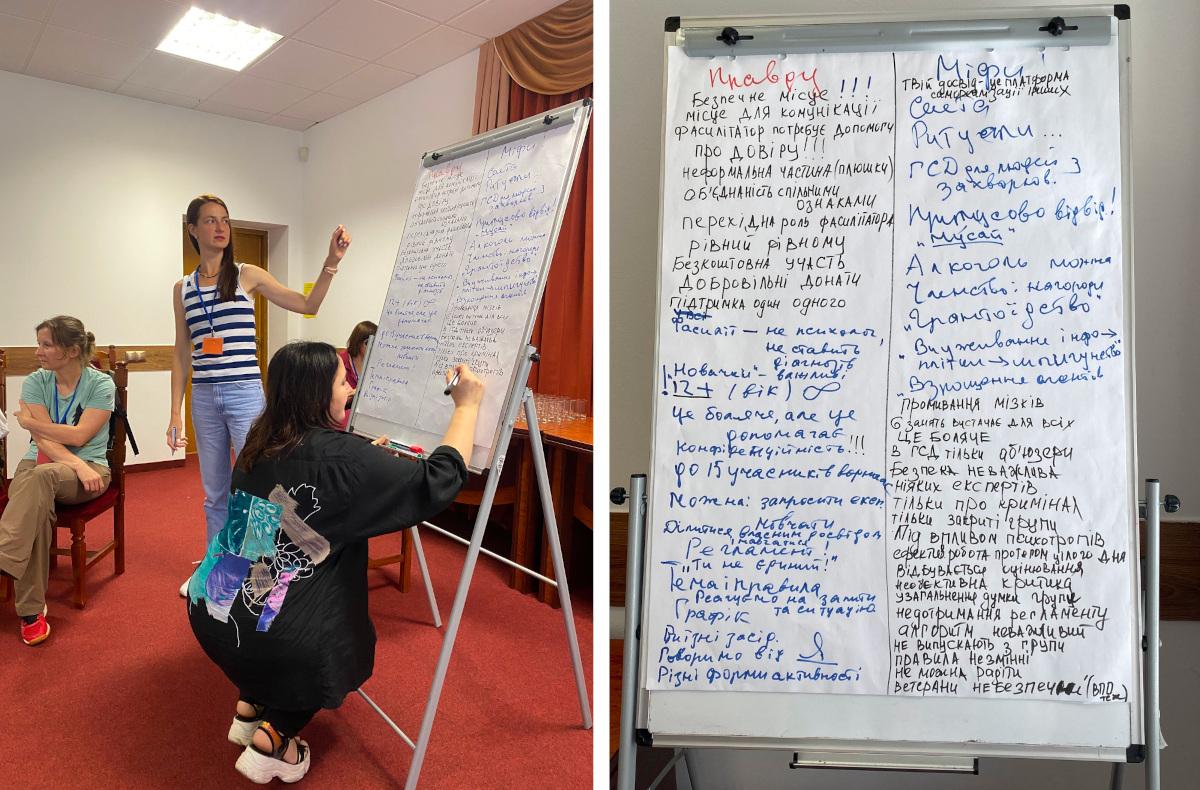 Правду
Безпечне місце!!!
місце для комунікації
фасилітатор потребує допомогу
про довіру!!!
неформальна частина (плюшки)
об'єднаність спільними
ознаками
перехідна роль фасилітатора
рівний рівному
Безкоштовна участь
Добровільні донати
підтримка один одного
Фасиліт — не психолог,
не ставить
діагнозів
"Новачки" - важливі
! 12+ / (вік) ∞
Це боляче, але це
допомагає
конфіденційність!!!
до 15 учасників
Можна: запросити експ.
мовчати
Ділитися власним досвідом
навчатися
Регламент!
— "Ти не єдиний!"
Тема і правила
Реагуємо на запити
та ситуацію
Графік
Виїзні засід.
Говоримо від Я
Різні форми активності
Міфи!
твій досвід - це платформа
самореалізації інших
Секта
Ритуали...
ГСД для людей з
захворюв.
Примусово відвід!
"Мусай"
Алкоголь можна
Членство: нагороди
"Грантоїдство"
"Вивуживання інфо→
плітки → шпигунство"
"Взрощення агентів
промивання мізків
6 занять вистачає для всіх
це боляче
в ГСД тільки аб'юзери
Безпека неважлива
ніяких експертів
тільки про кримінал
тільки закриті групи
під впливом психотропів
ефективна робота протягом цілого дня
відбувається оцінювання
необ'єктивна критика
узагальнення думки групи
недотримання регламенту
алгоритм неважливий
не випускають з групи
правила незмінні
не можна радіти
ветерани небезпечні (ВПО
теж)